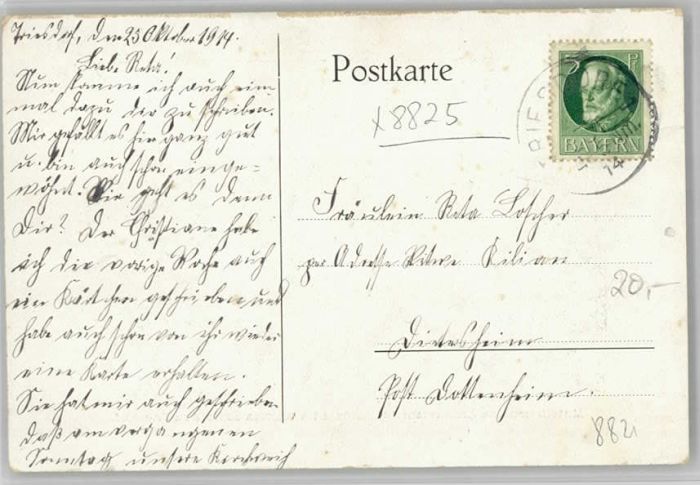 Triesdorf, den 25 Oktober 1914.
Liebe Reta!
Nun komme ich auch ein-
mal dazu dir zu schreiben.
Mir gefällt es hier ganz gut
u. bin auch schon einge-
wöhnt. Wie geht es denn
Dir? Der Christiane habe
ich die vorige Woche auch
ein Kärtchen geschrieben und
habe auch schon von ihr wieder
eine Karte erhalten.
Sie hat mir auch geschrieben
daß am vergangenen
Sonntag unsere Kirchweih
Postkarte
x8825
5 Pf
BAYERN
TRIESDORF
14
Fräulein Reta Loscher
per Adresse Witwe Kilian
20,-
Dietersheim
Post Dottenheim.
882